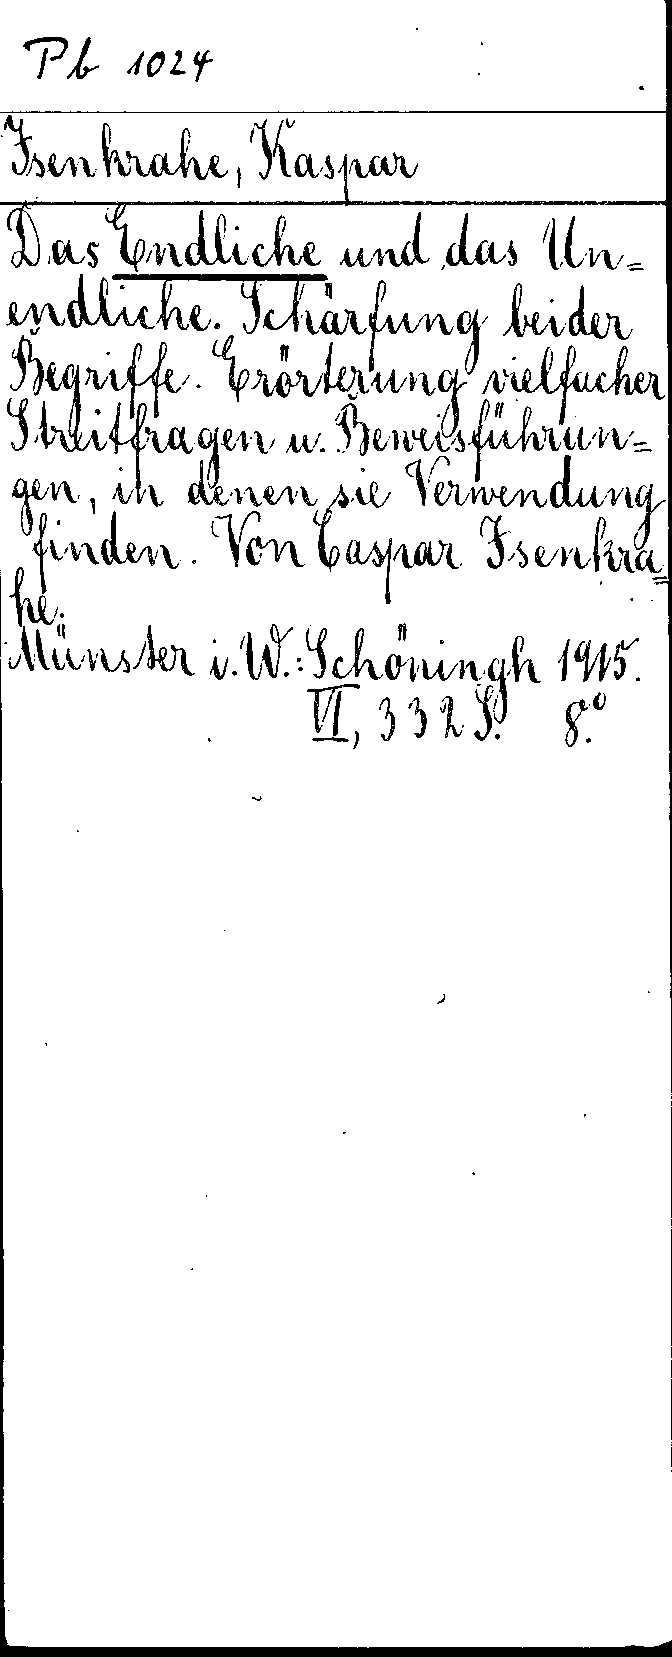 Pb 1024
Isenkrahe, Kaspar
Das Endliche und das Un=
endliche. Schärfung beider
Begriffe. Erörterung vielfacher
Streitfragen u. Beweisführun=
gen, in denen sie Verwendung
finden. Von Caspar Isenkra=
he.
Münster i. W.: Schöningh 1915.
VI, 332 S. 8°.